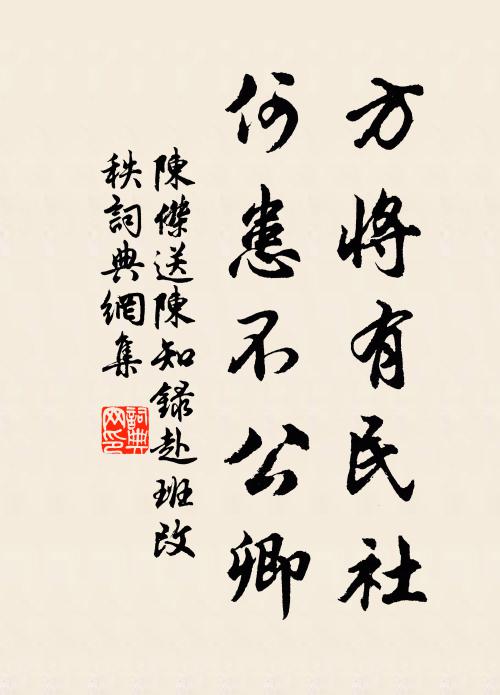 方將有民社
何患不公卿
陳傑送陳知錄赴班改
秩詞典網集
詞典網印